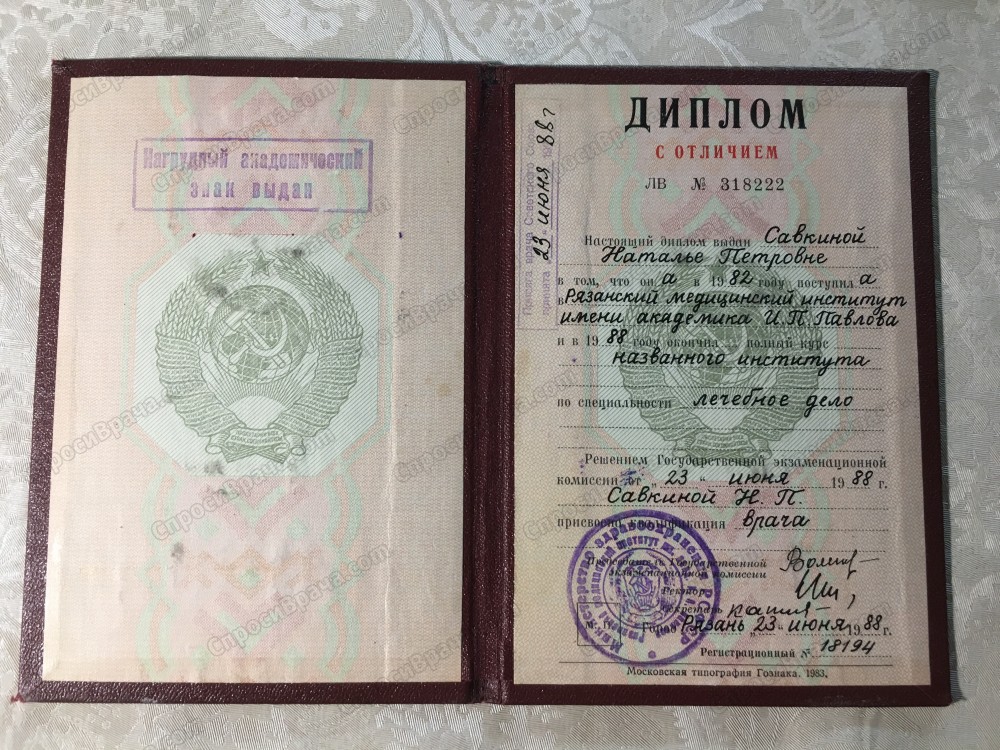 Нагрудный академический
знак выдан
ДИПЛОМ
С ОТЛИЧИЕМ
ЛВ № 318222
Присяга врача Советского Союза
принята „23" июня 1988 г
Настоящий диплом выдан Савкиной
Наталье Петровне
в том, что он а в 1982 году поступил а
в Рязанский медицинский институт
имени академика И.П. Павлова
и в 1988 году окончил а полный курс
названного института
по специальности лечебное дело
Решением Государственной экзаменационной
комиссии от „23" июня 1988 г.
Савкиной Н. П.
присвоена квалификация врача
Председатель Государственной
экзаменационной комиссии
Ректор
Секретарь
Город Рязань „23" июня 1988 г.
Регистрационный № 18194
Московская типография Гознака. 1983.
СпросиВрача.com